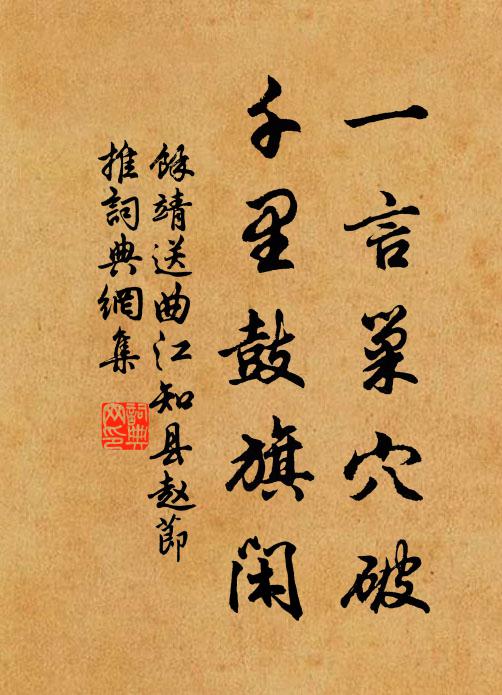 一言巢穴破
千里鼓旗闲
馀靖送曲江知县赵节
推詞典網集
詞典網印